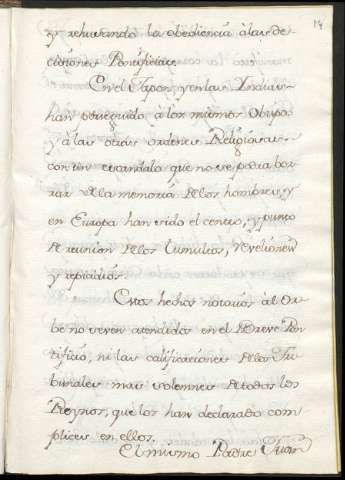 14
y rehusando la obediencia à las de-
cisiones Pontificias.
En el Japon, y en las Indias
han perseguido à los mismos Obispos
y à las otras ordenes Religiosas
con un escandalo que no se podra bor-
rar de la memoria de los hombres, y
en Europa han sido el centro, y punto
de reunion de los tumultos, reveliones
y regicidios.
Estos hechos notorios al Or-
be no se ven atendidos en el Breve Pon-
tificio, ni las calificaciones de los Tri-
bunales mas solemnes de todos los
Reynos, que los han declarado com-
plices en ellos.
El mismo Padre Juan